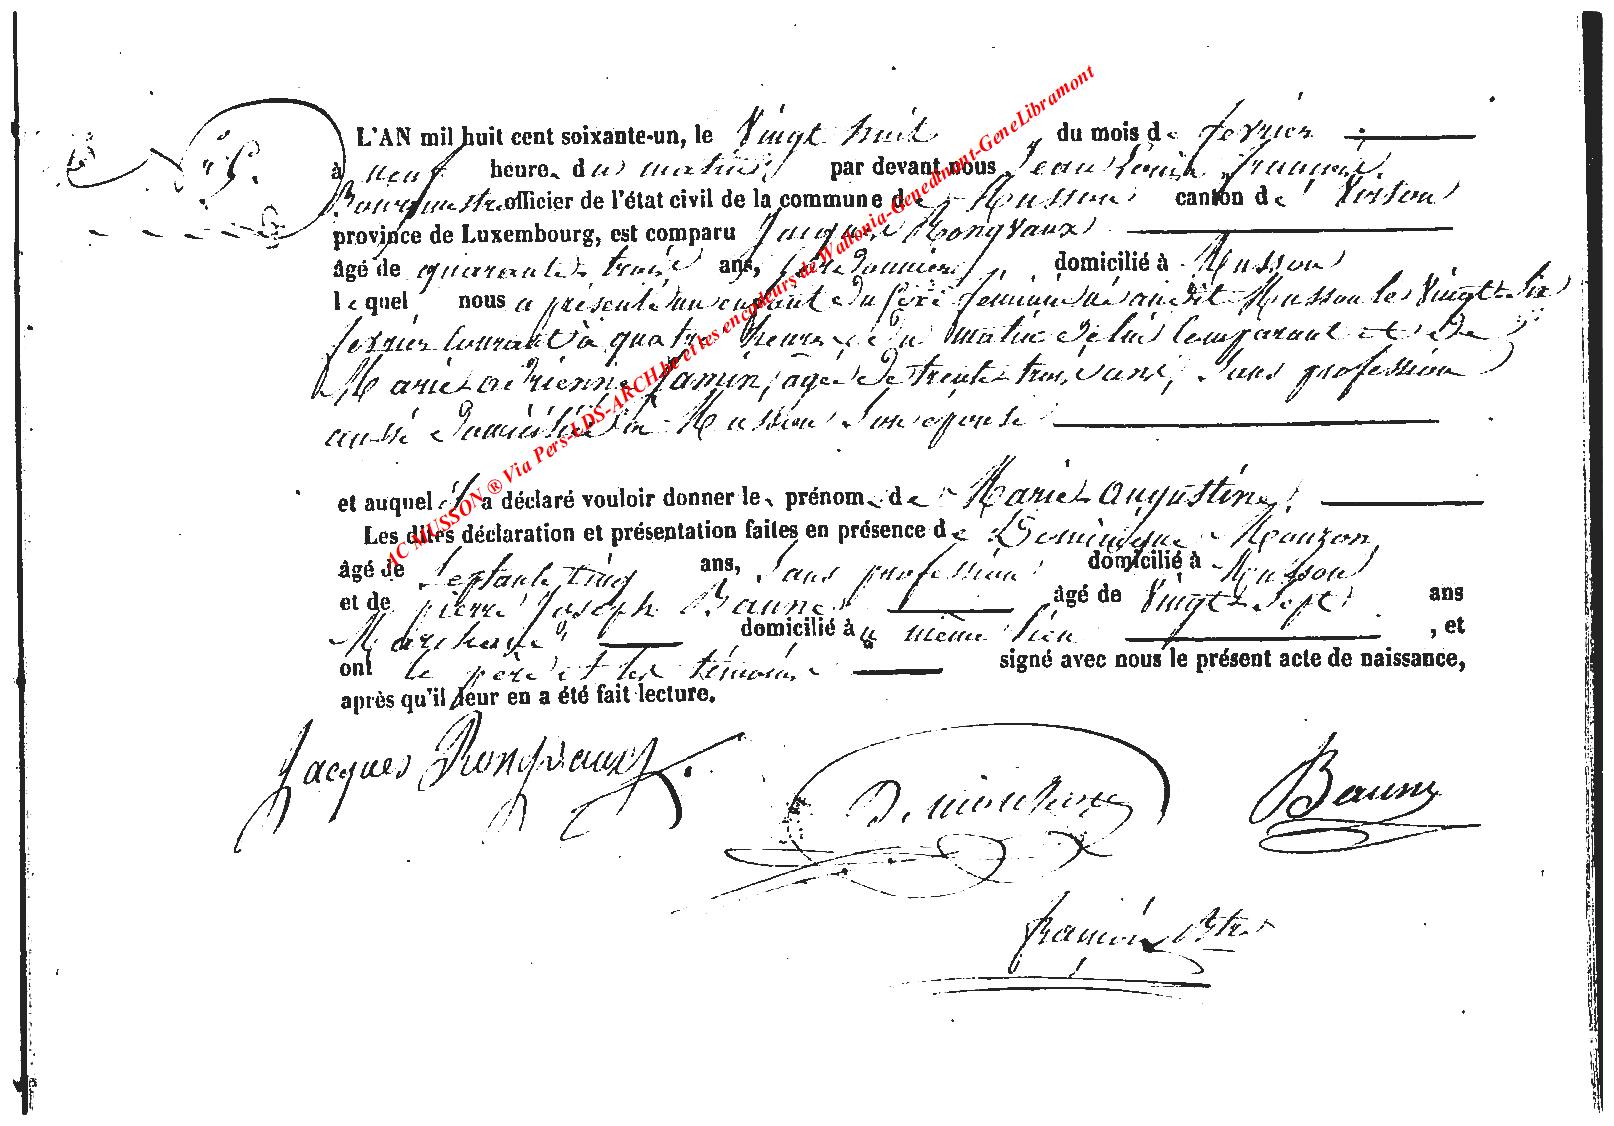 L'AN mil huit cent soixante-un, le Vingt huit du mois de fevrier
à neuf heures du matin par devant nous Jean Louis françois,
Bourgmestre officier de l'état civil de la commune de Musson canton de Virton
province de Luxembourg, est comparu Jacques Rongvaux
âgé de quarante trois ans, domicilié à Musson
lequel nous a présenté un enfant du sexe feminin né audit Musson le Vingt six
fevrier courant à quatre heures du matin de lui Comparant et de
Marie adrienne Jamin, agée de trente trois ans, Sans profession
aussi domiciliée à Musson Son epouse
et auquel il a déclaré vouloir donner le prénom de Marie augustine
Les dites déclaration et présentation faites en présence de Dominique Mouzon,
âgé de Septante cinq ans, Sans profession domicilié à Musson
et de pierre Joseph Baune âgé de Vingt Sept ans
Marchand domicilié à même lieu, et
ont le père et les témoins signé avec nous le présent acte de naissance,
après qu'il leur en a été fait lecture.
Jacques Rongvaux
Baune
françois Btre
AC MUSSON ® Via Pers-LDS-ARCH.be et les encodeurs de Wallonia-Genedinant-GeneLibramont